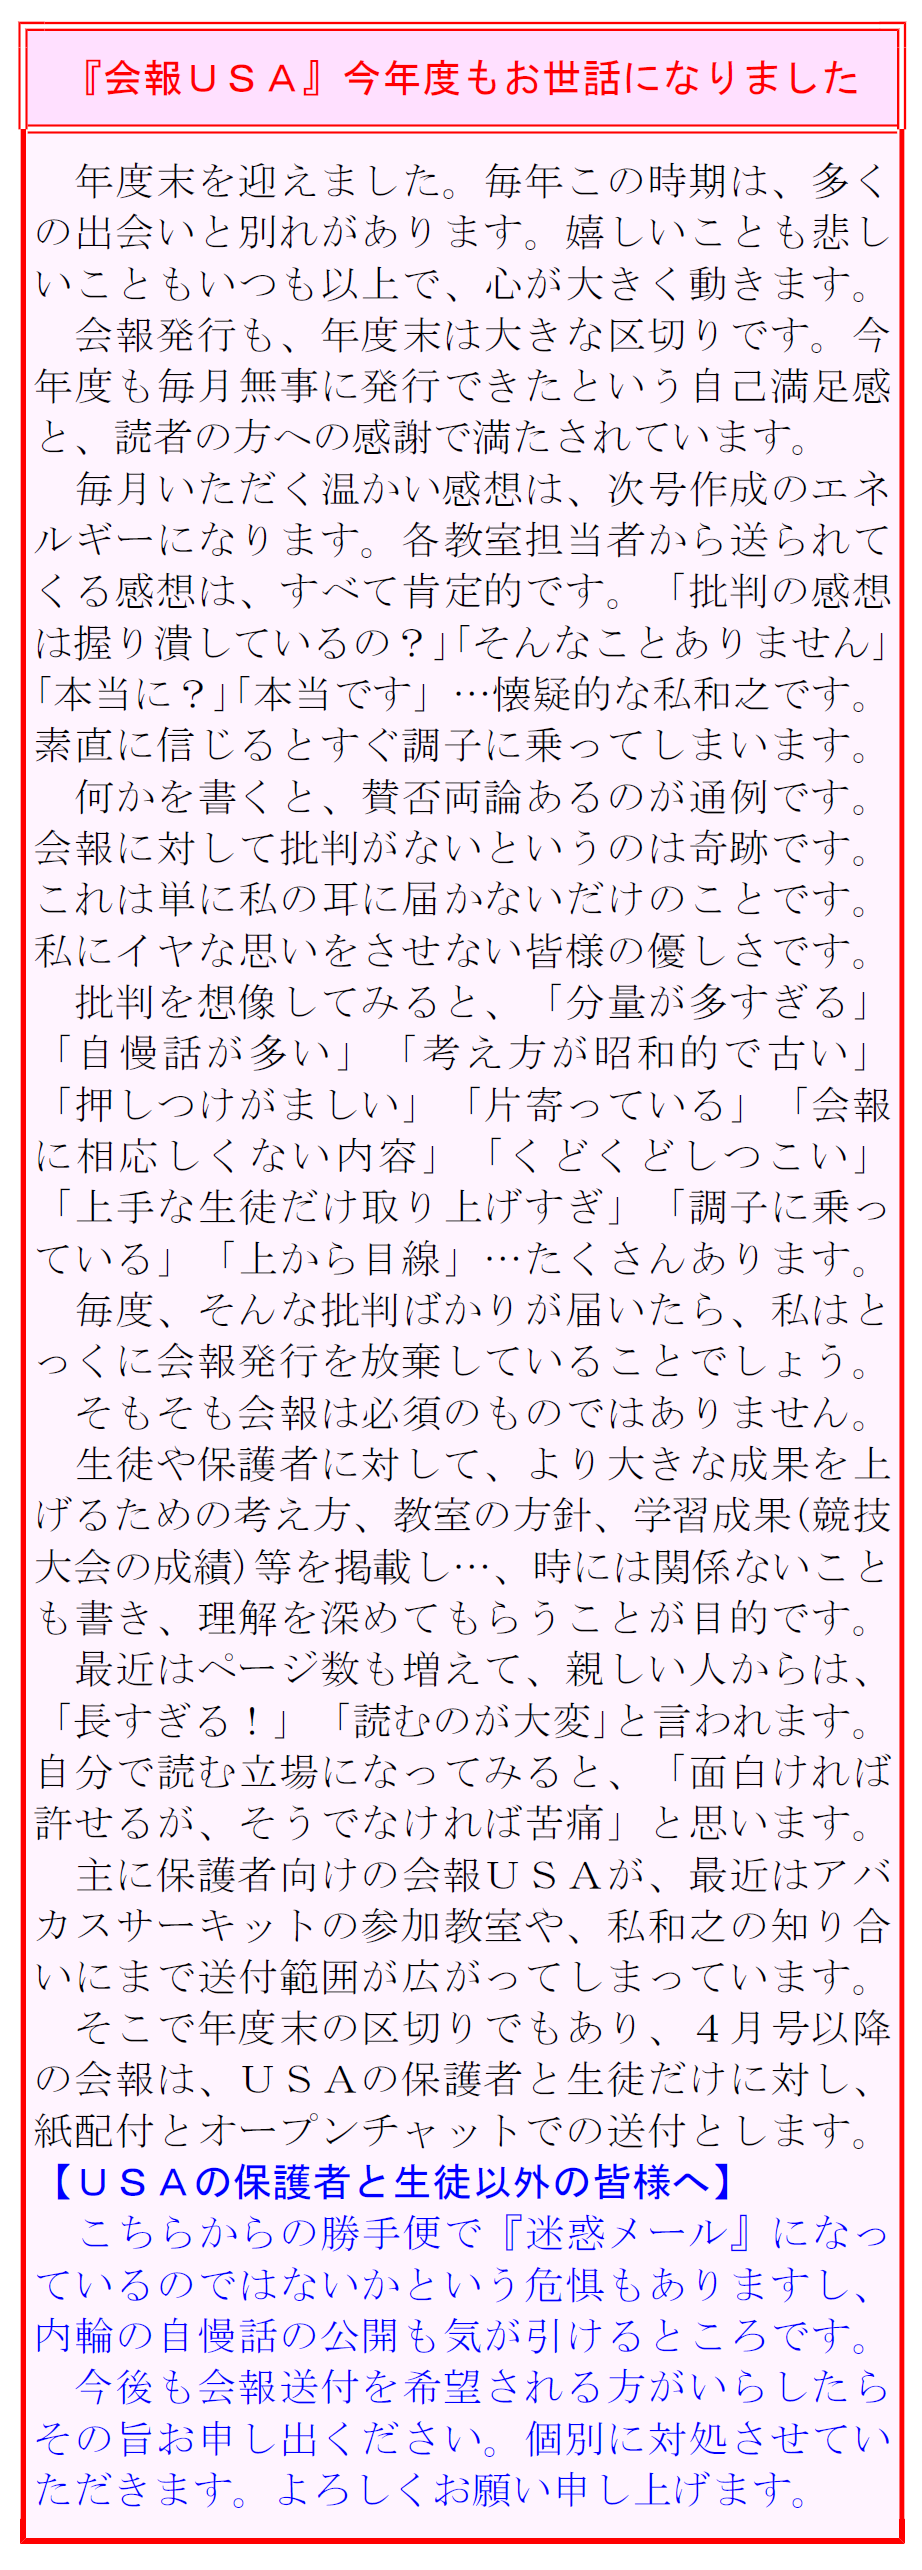 『会報ＵＳＡ』今年度もお世話になりました
年度末を迎えました。毎年この時期は、多く
の出会いと別れがあります。嬉しいことも悲し
いこともいつも以上で、心が大きく動きます。
会報発行も、年度末は大きな区切りです。今
年度も毎月無事に発行できたという自己満足感
と、読者の方への感謝で満たされています。
毎月いただく温かい感想は、次号作成のエネ
ルギーになります。各教室担当者から送られて
くる感想は、すべて肯定的です。「批判の感想
は握り潰しているの？」「そんなことありません」
「本当に？」「本当です」…懐疑的な私和之です。
素直に信じるとすぐ調子に乗ってしまいます。
何かを書くと、賛否両論あるのが通例です。
会報に対して批判がないというのは奇跡です。
これは単に私の耳に届かないだけのことです。
私にイヤな思いをさせない皆様の優しさです。
批判を想像してみると、「分量が多すぎる」
「自慢話が多い」「考え方が昭和的で古い」
「押しつけがましい」「片寄っている」「会報
に相応しくない内容」「くどくどしつこい」
「上手な生徒だけ取り上げすぎ」「調子に乗っ
ている」「上から目線」…たくさんあります。
毎度、そんな批判ばかりが届いたら、私はと
っくに会報発行を放棄していることでしょう。
そもそも会報は必須のものではありません。
生徒や保護者に対して、より大きな成果を上
げるための考え方、教室の方針、学習成果(競技
大会の成績)等を掲載し…、時には関係ないこと
も書き、理解を深めてもらうことが目的です。
最近はページ数も増えて、親しい人からは、
「長すぎる！」「読むのが大変」と言われます。
自分で読む立場になってみると、「面白ければ
許せるが、そうでなければ苦痛」と思います。
主に保護者向けの会報ＵＳＡが、最近はアバ
カスサーキットの参加教室や、私和之の知り合
いにまで送付範囲が広がってしまっています。
そこで年度末の区切りでもあり、４月号以降
の会報は、ＵＳＡの保護者と生徒だけに対し、
紙配付とオープンチャットでの送付とします。
【ＵＳＡの保護者と生徒以外の皆様へ】
こちらからの勝手便で『迷惑メール』になっ
ているのではないかという危惧もありますし、
内輪の自慢話の公開も気が引けるところです。
今後も会報送付を希望される方がいらしたら
その旨お申し出ください。個別に対処させてい
ただきます。よろしくお願い申し上げます。